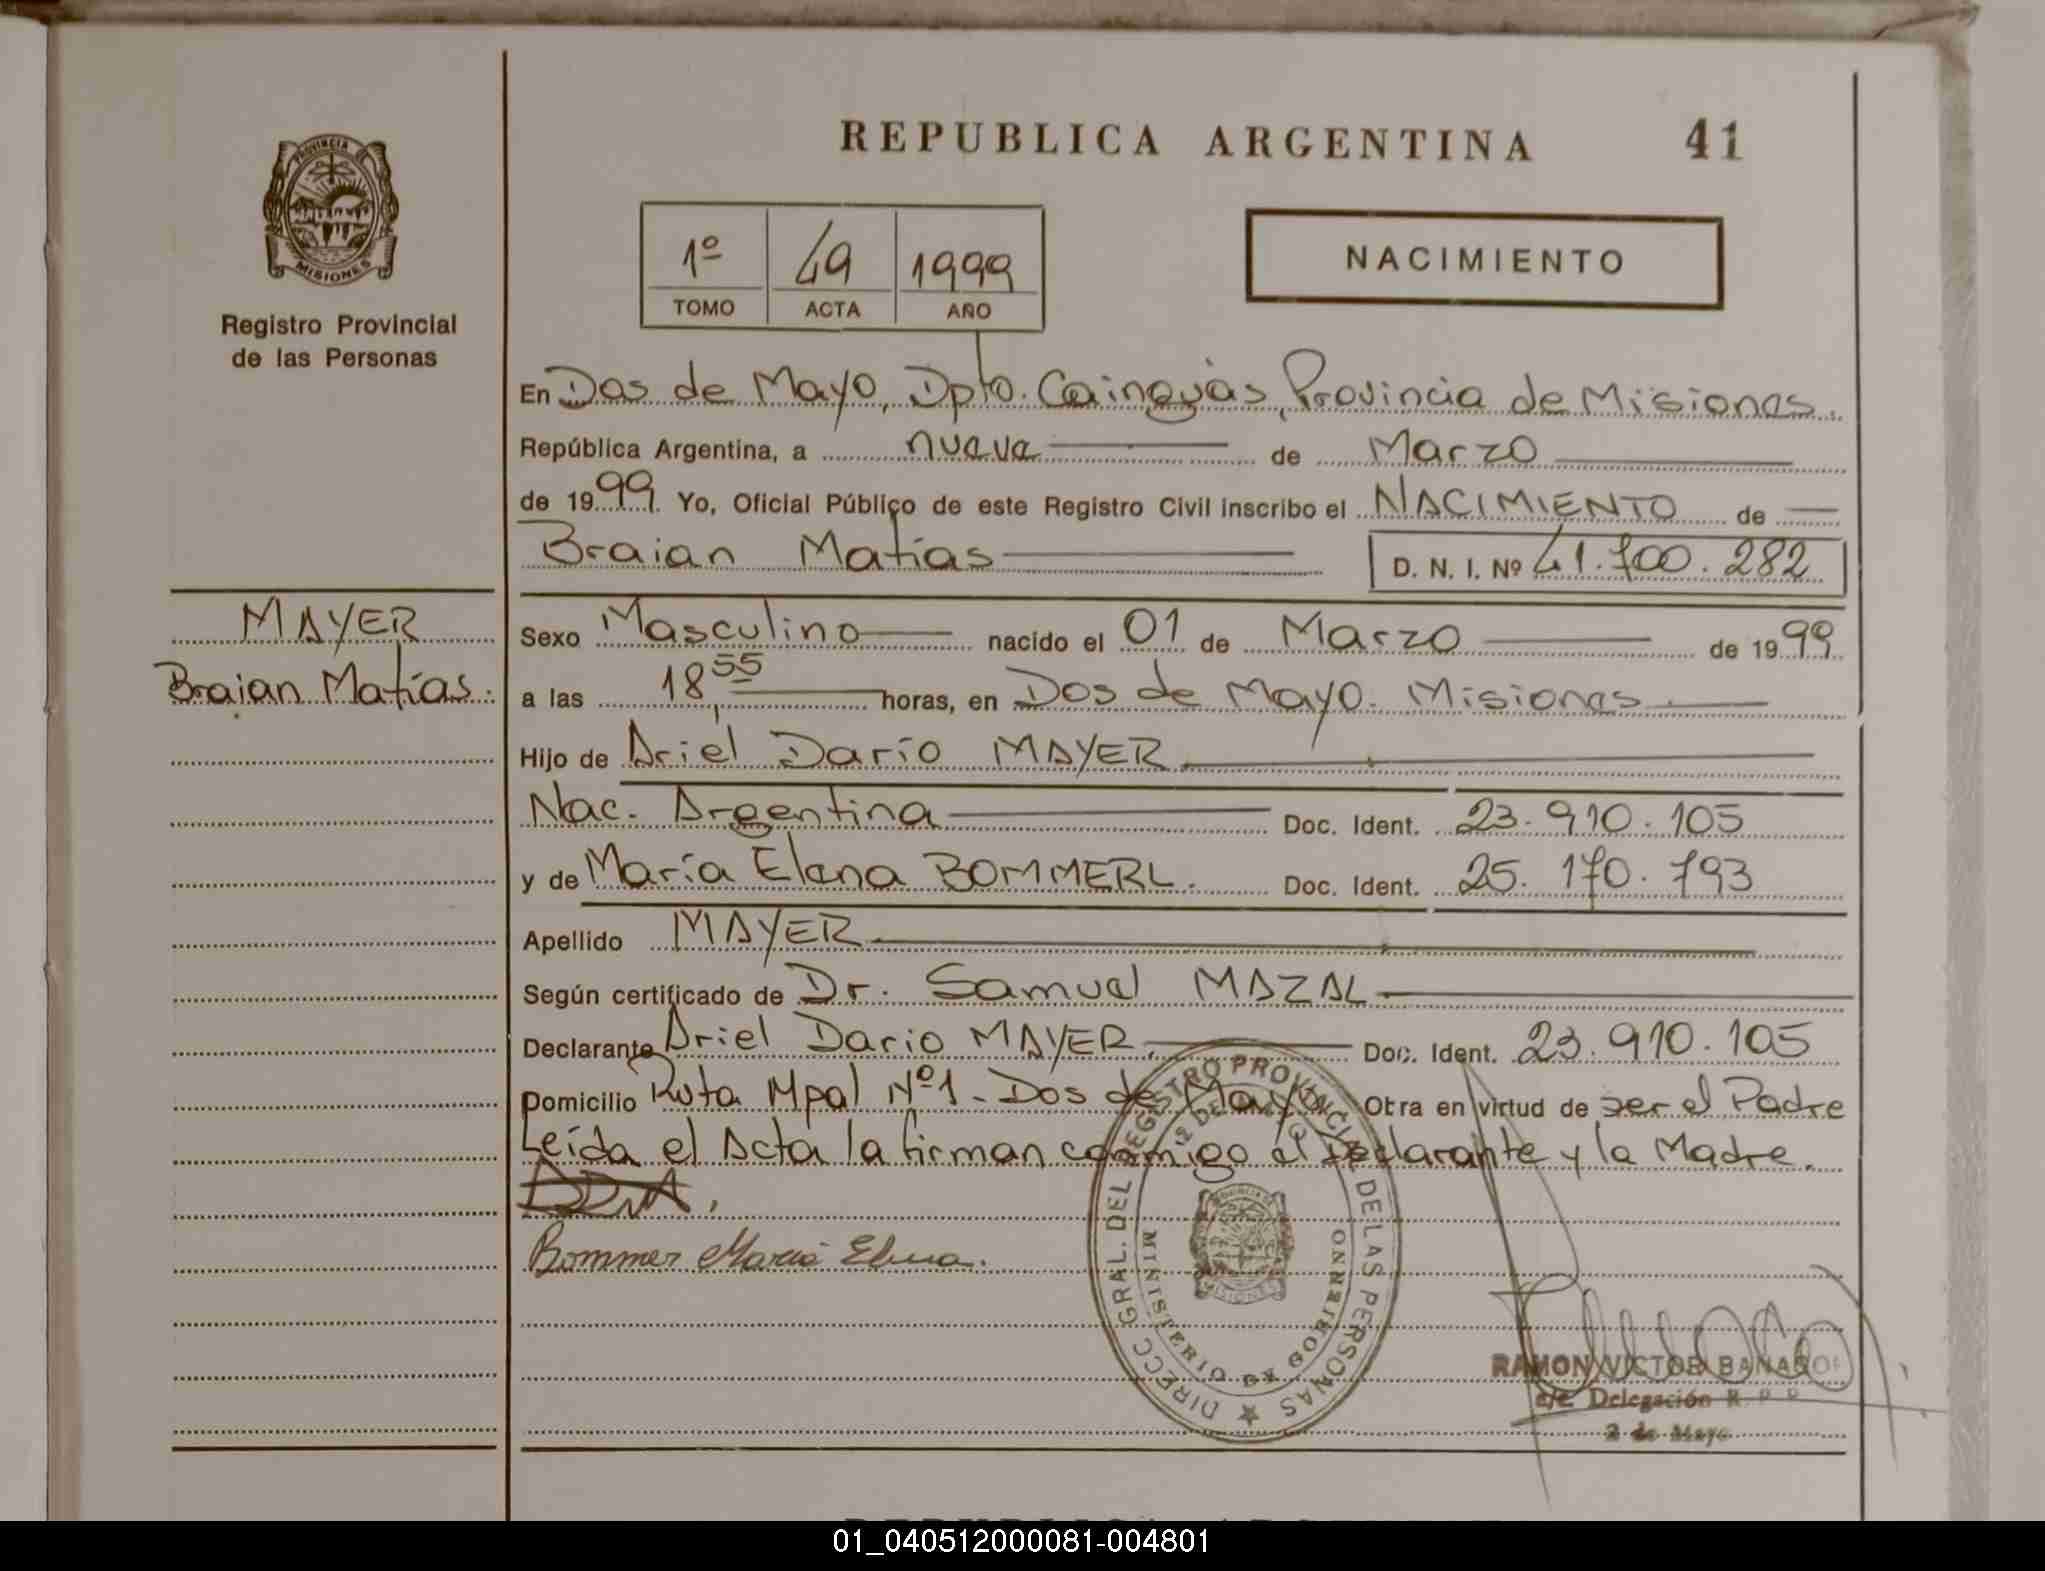 REPUBLICA ARGENTINA 41
PROVINCIA DE
MISIONES
Registro Provincial
de las Personas
1º 49 1999
TOMO ACTA AÑO
NACIMIENTO
En Dos de Mayo, Dpto. Cainguás, Provincia de Misiones.
República Argentina, a nueve de Marzo
de 1999. Yo, Oficial Público de este Registro Civil inscribo el NACIMIENTO de
Braian Matías D. N. I. Nº 41.700.282
MAYER
Braian Matías.
Sexo Masculino nacido el 01 de Marzo de 1999
a las 18,55 horas, en Dos de Mayo. Misiones
Hijo de Ariel Darío MAYER
Nac. Argentina Doc. Ident. 23.910.105
y de María Elena BOMMER. Doc. Ident. 25.170.793
Apellido MAYER
Según certificado de Dr. Samuel MAZAL
Declarante Ariel Dario MAYER. Doc. Ident. 23.910.105
Domicilio Ruta Mpal Nº1 - Dos de Mayo Obra en virtud de ser el Padre
Leída el Acta la firman conmigo el Declarante y la Madre.
Bommer Maria Elena.
DIRECC GRAL. DEL REGISTRO PROVINCIAL DE LAS PERSONAS
2 DE MAYO
MINISTERIO DE GOBIERNO
MISIONES
RAMON VICTOR
a/c Delegación R. P. P.
2 de Mayo
01_040512000081-004801